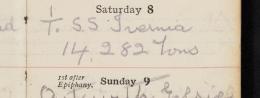 Saturday 8
T. S.S Ivernia
14,282 Tons
1st after
Epiphany. Sunday 9